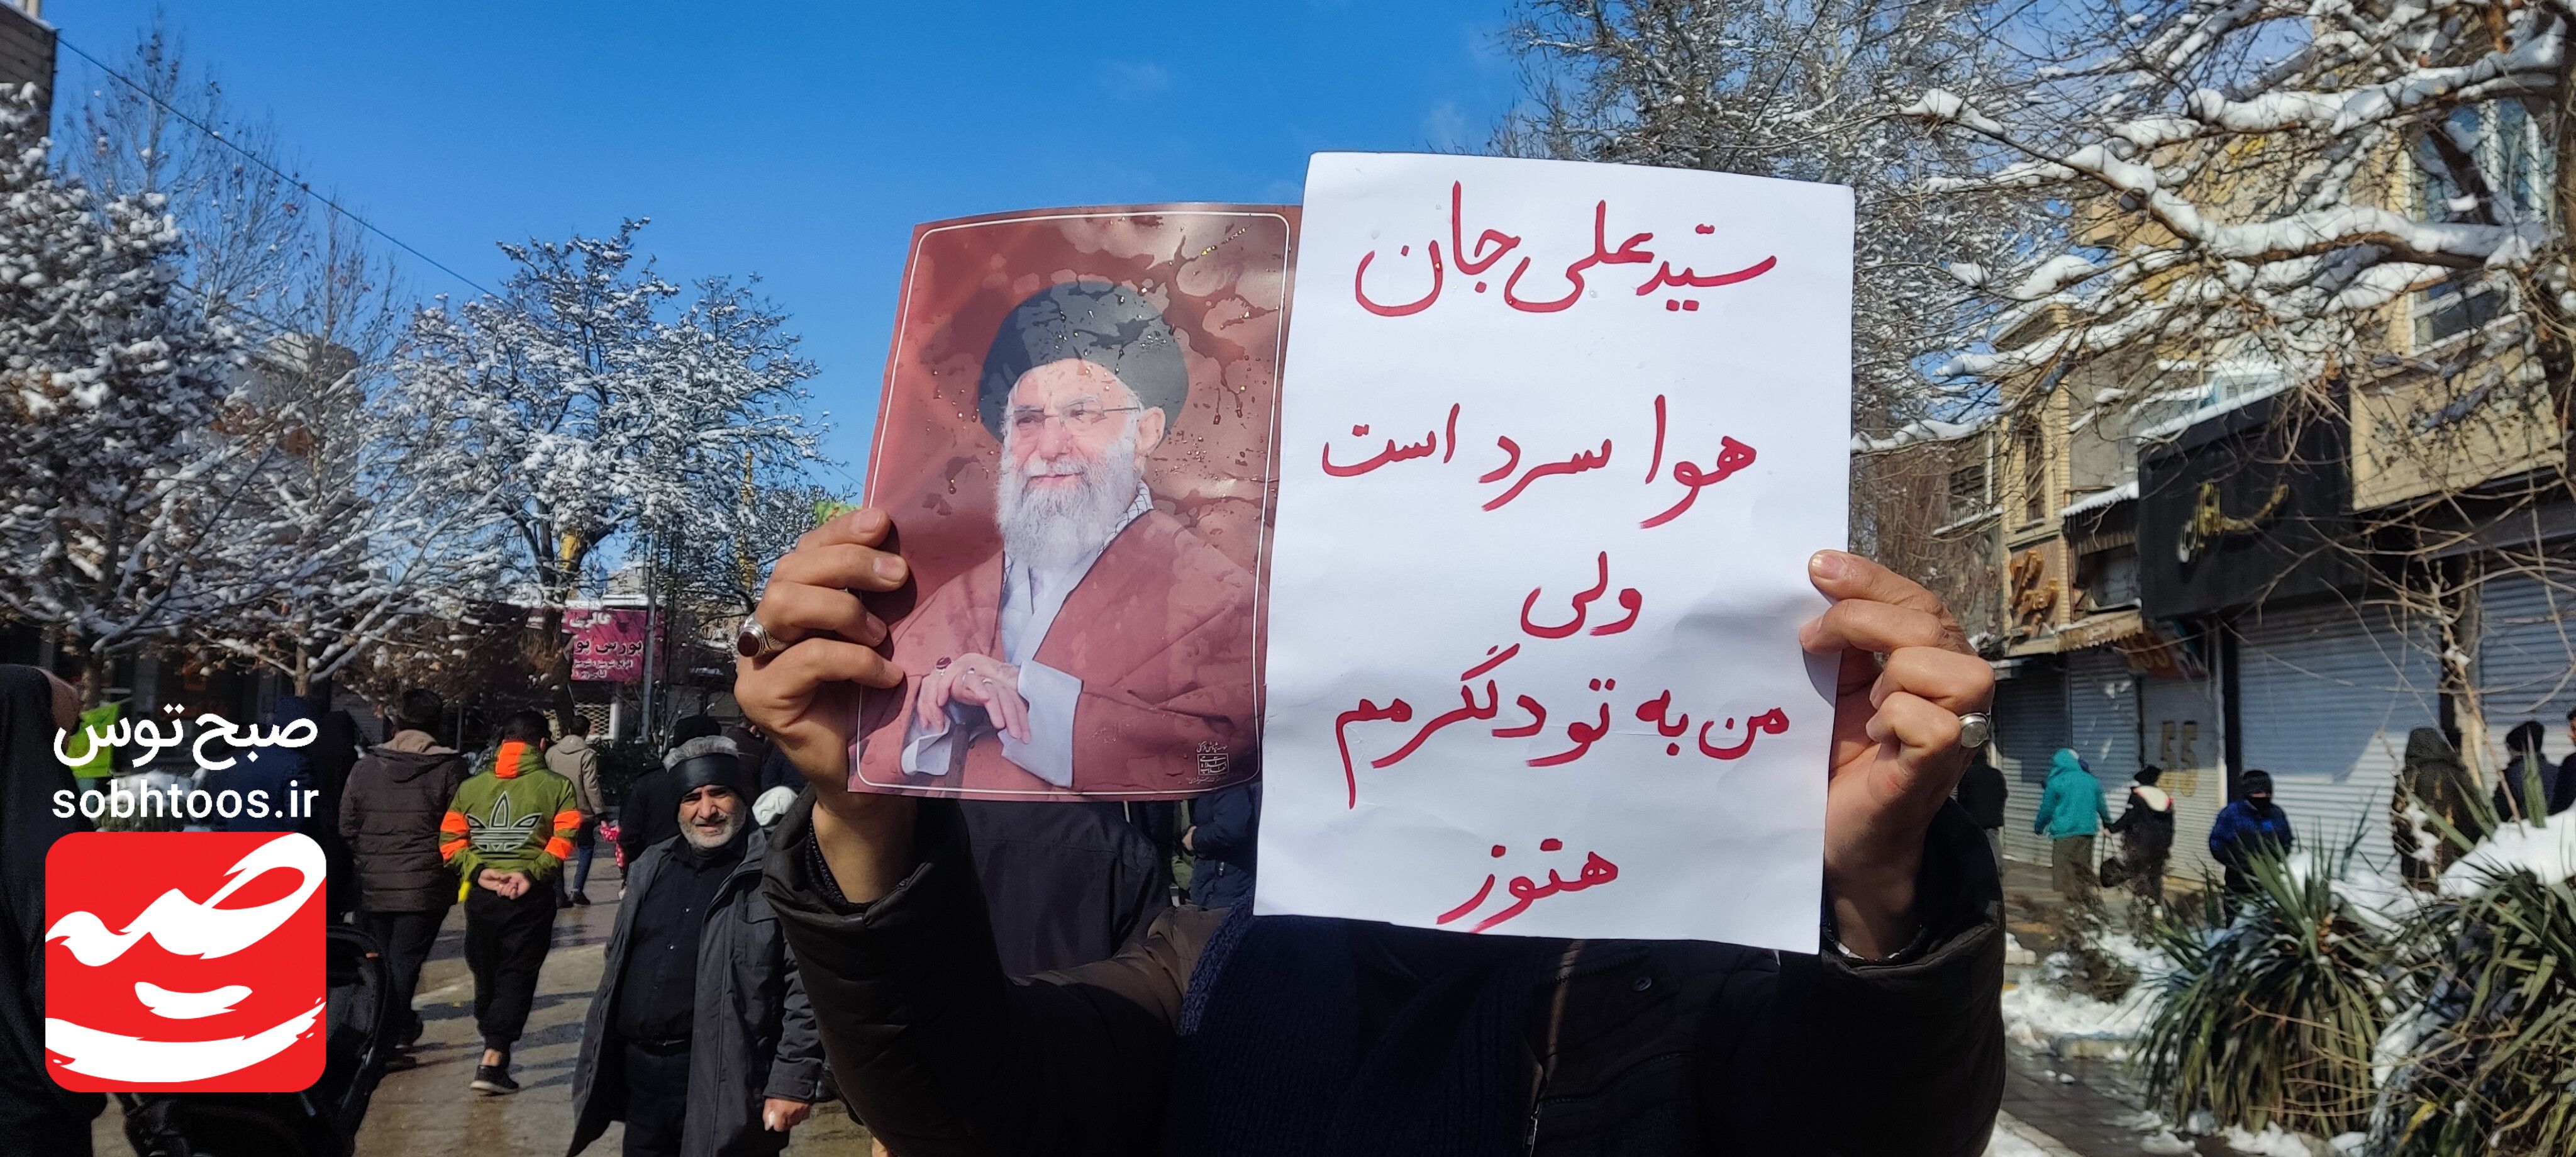 سیّدعلی جان
هوا سرد است
ولی
من به تو دلگرمم
هنوز
صبح توس
sobhtoos.ir
بورس
55